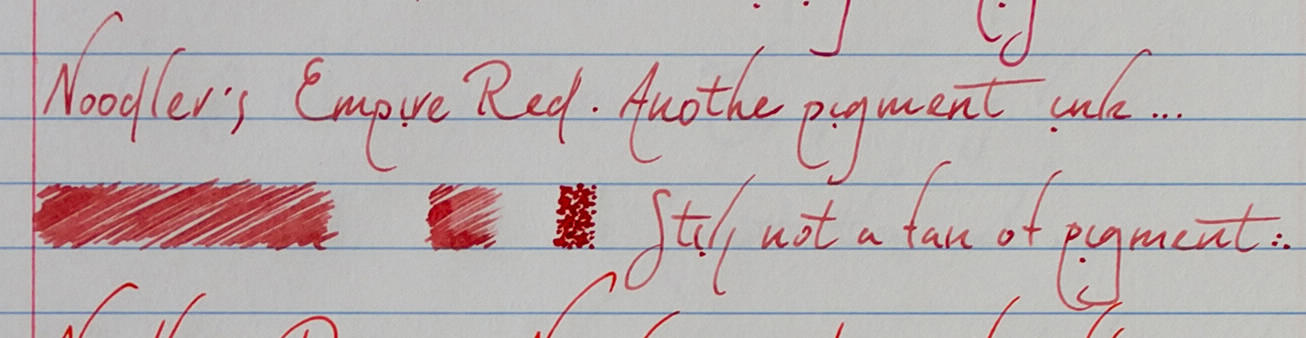 Noodler's Empire Red. Anothe pigment ink...
Still not a fan of pigment:.